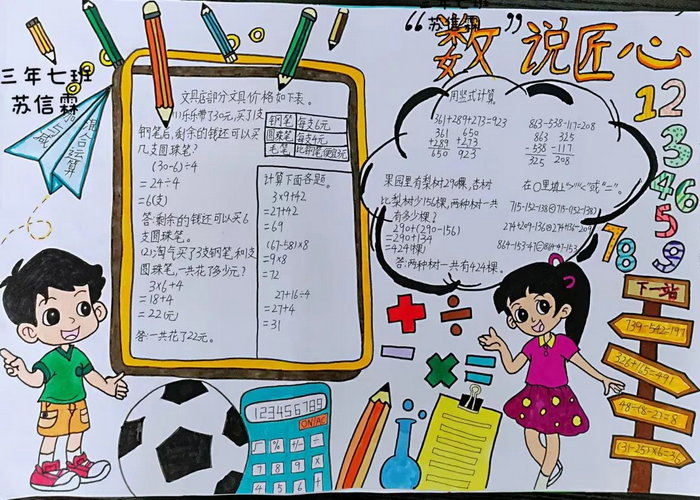 “数”说匠心
三年七班
苏信霖
混合运算
文具店部分文具价格如下表。
(1)乐乐带了30元,买了1支
钢笔后,剩余的钱还可以买
几支圆珠笔?
(30-6)÷4
=24÷4
=6(支)
答:剩余的钱还可以买6
支圆珠笔。
(2)淘气买了3支钢笔,和1支
圆珠笔,一共花了多少元?
3×6+4
=18+4
=22(元)
答:一共花了22元。
钢笔 每支6元
圆珠笔 每支4元
毛笔 比钢笔便宜3元
计算下面各题。
3×9+42
=27+42
=69
(67-58)×8
=9×8
=72
27+16÷4
=27+4
=31
用竖式计算。
361+289+273=923
361 650
+289 +273
650 923
863-538-117=208
863 325
-538 -117
325 208
果园里有梨树290棵,杏树
比梨树少156棵,两种树一共
有多少棵?
290+(290-156)
=290+134
=424(棵)
答:两种树一共有424棵。
在○里填上“>”“<”或“=”。
1
2
3
4
6
5
7
8
9
下一站
739-542=197
326+165=491
48-(8-2)=8
(31-25)×6=36
123456789
ON/AC
% +/- ÷
7 8 9 ×
4 5 6